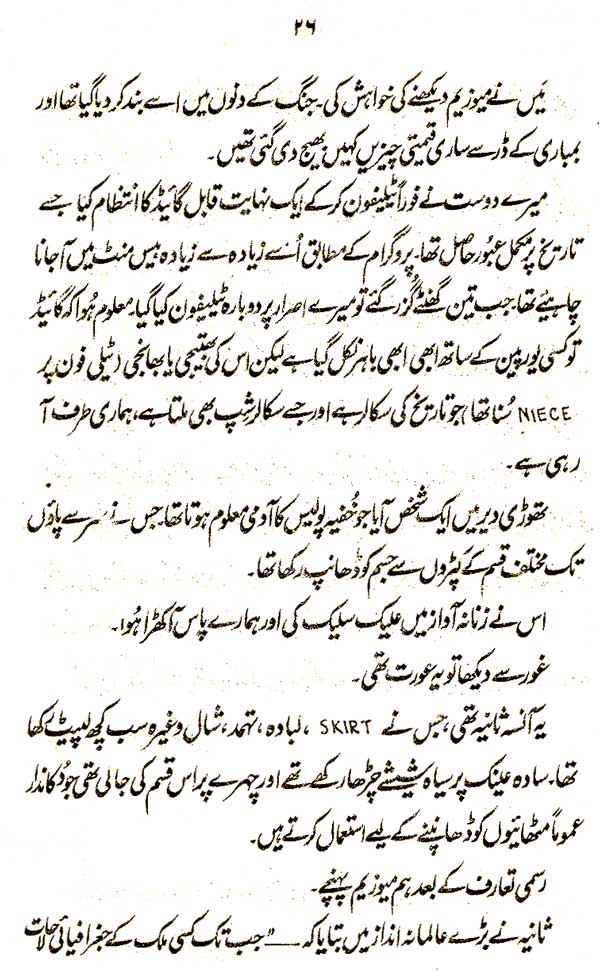 ۲۶
میں نے میوزیم دیکھنے کی خواہش کی۔ جنگ کے دنوں میں اسے بند کر دیا گیا تھا اور
بمباری کے ڈر سے ساری قیمتی چیزیں کہیں بھیج دی گئی تھیں۔
میرے دوست نے فوراً ٹیلیفون کر کے ایک نہایت قابل گائیڈ کا انتظام کیا جسے
تاریخ پر مکمل عبور حاصل تھا۔ پروگرام کے مطابق اُسے زیادہ سے زیادہ بیس منٹ میں آ جانا
چاہیئے تھا۔ جب تین گھنٹے گزر گئے تو میرے اصرار پر دوبارہ ٹیلیفون کیا گیا۔ معلوم ہُوا کہ گائیڈ
تو کسی یورپین کے ساتھ ابھی ابھی باہر نکل گیا ہے لیکن اس کی بھتیجی یا بھانجی (ٹیلی فون پر
NIECE سُنا تھا) جو تاریخ کی سکالر ہے اور جسے سکالر شپ بھی ملتا ہے، ہماری طرف آ
رہی ہے۔
تھوڑی دیر میں ایک شخص آیا جو خُفیہ پولیس کا آدمی معلوم ہوتا تھا۔ جس نے سر سے پاؤں
تک مختلف قسم کے کپڑوں سے جسم کو ڈھانپ رکھا تھا۔
اس نے زنانہ آواز میں علیک سلیک کی اور ہمارے پاس آ کھڑا ہُوا۔
غور سے دیکھا تو یہ عورت تھی۔
یہ آنسہ ثانیہ تھی، جس نے SKIRT ، لبادہ، تہمد، شال وغیرہ سب کچھ لپیٹ رکھا
تھا۔ سادہ عینک پر سیاہ شیشے چڑھا رکھے تھے اور چہرے پر اس قسم کی جالی تھی جو دُکاندار
عموماً مٹھائیوں کو ڈھانپنے کے لیے استعمال کرتے ہیں۔
رسمی تعارف کے بعد ہم میوزیم پہنچے۔
ثانیہ نے بڑے عالمانہ انداز میں بتایا کہ —— ”جب تک کسی ملک کے جغرافیائی حالات